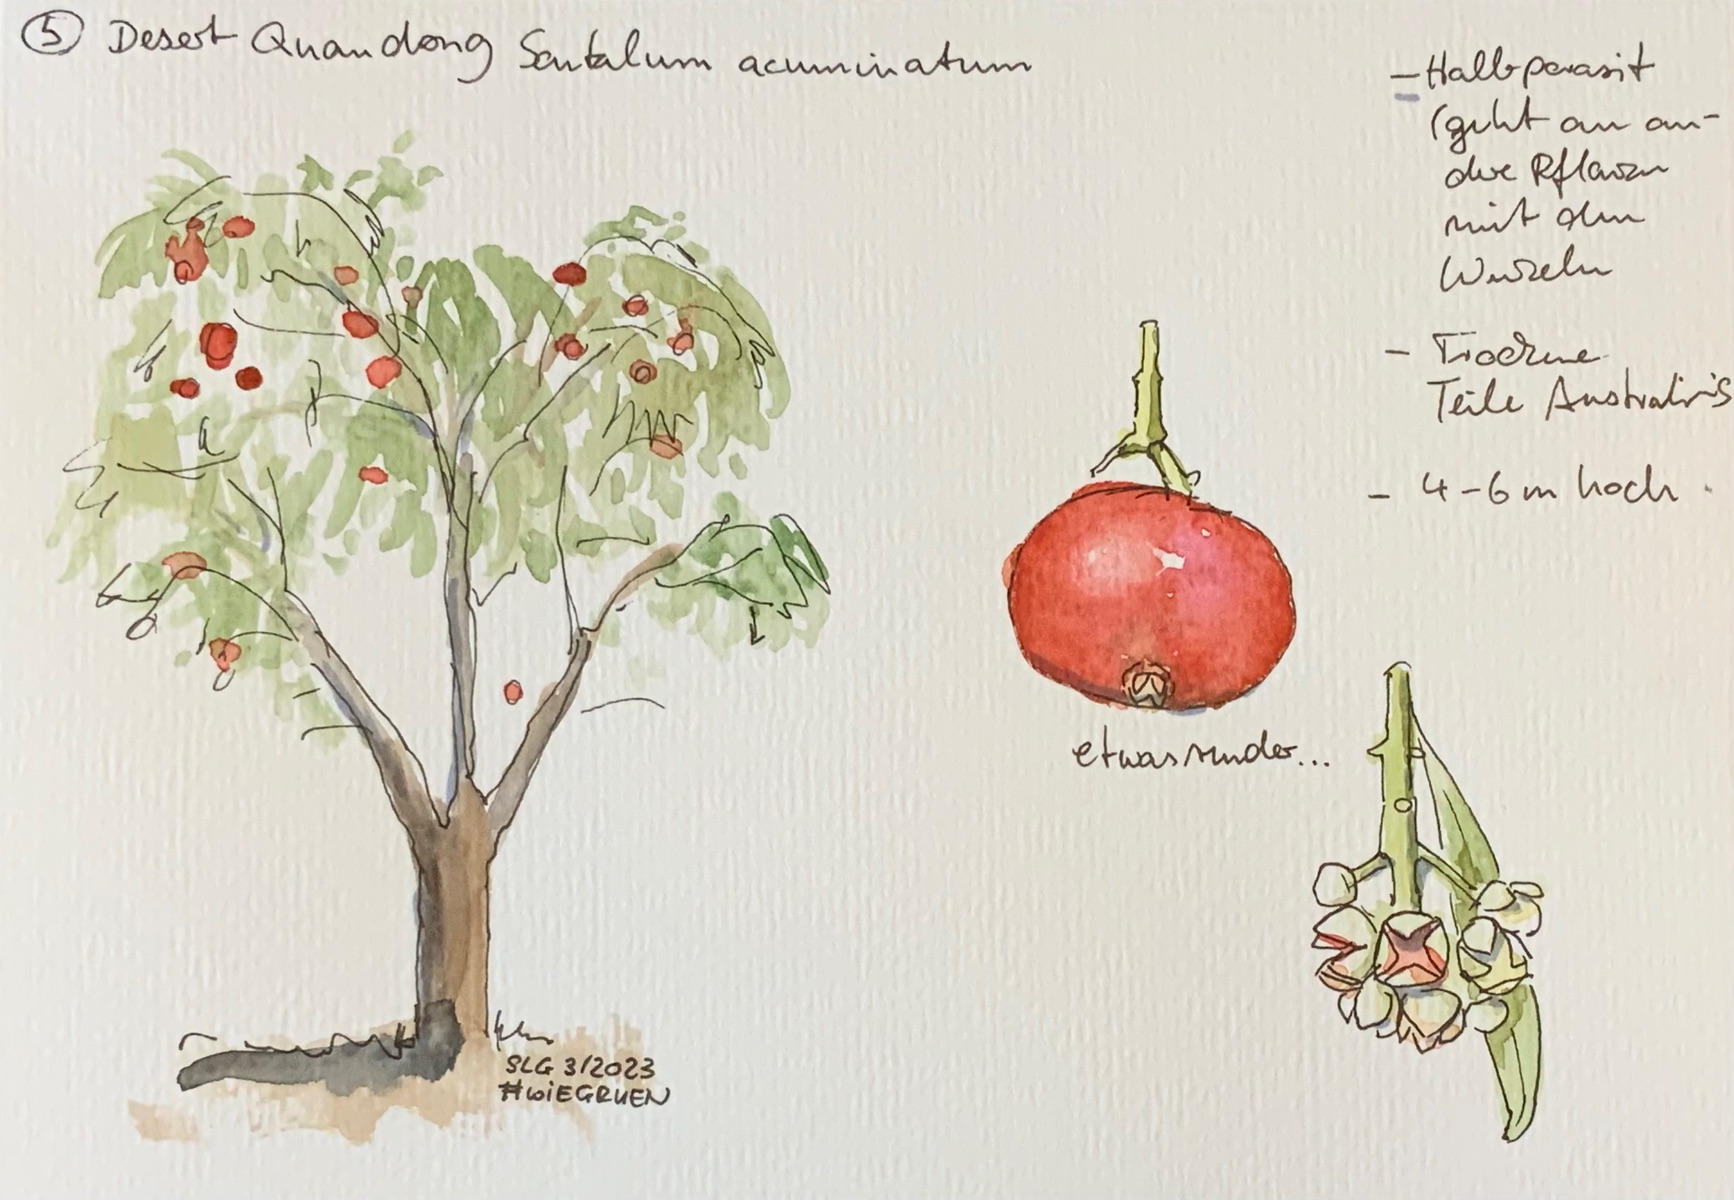 ⑤ Desert Quandong Santalum acuminatum
– Halbparasit
(geht an an-
dere Pflanzen
mit den
Wurzeln
– Trockene
Teile Australiens
– 4-6 m hoch
etwas runder...
SLG 3/2023
#WIEGRUEN